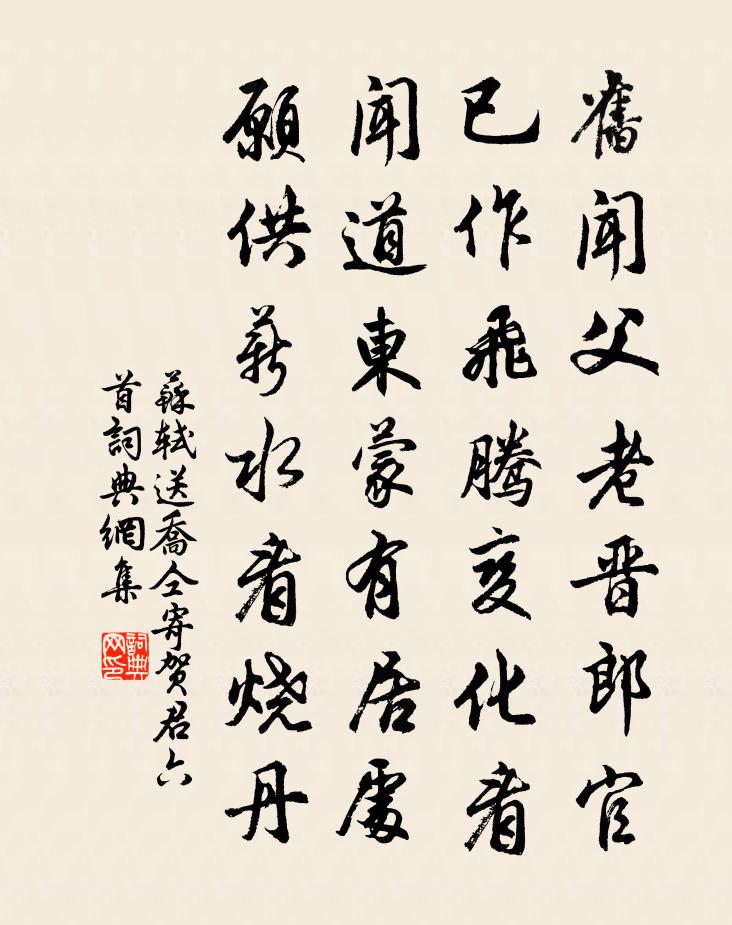 舊聞父老晋郎官
已作飛騰變化看
聞道東蒙有居處
願供薪水看燒丹
蘇軾送喬仝寄賀君六
首詞典網集
詞典
网印